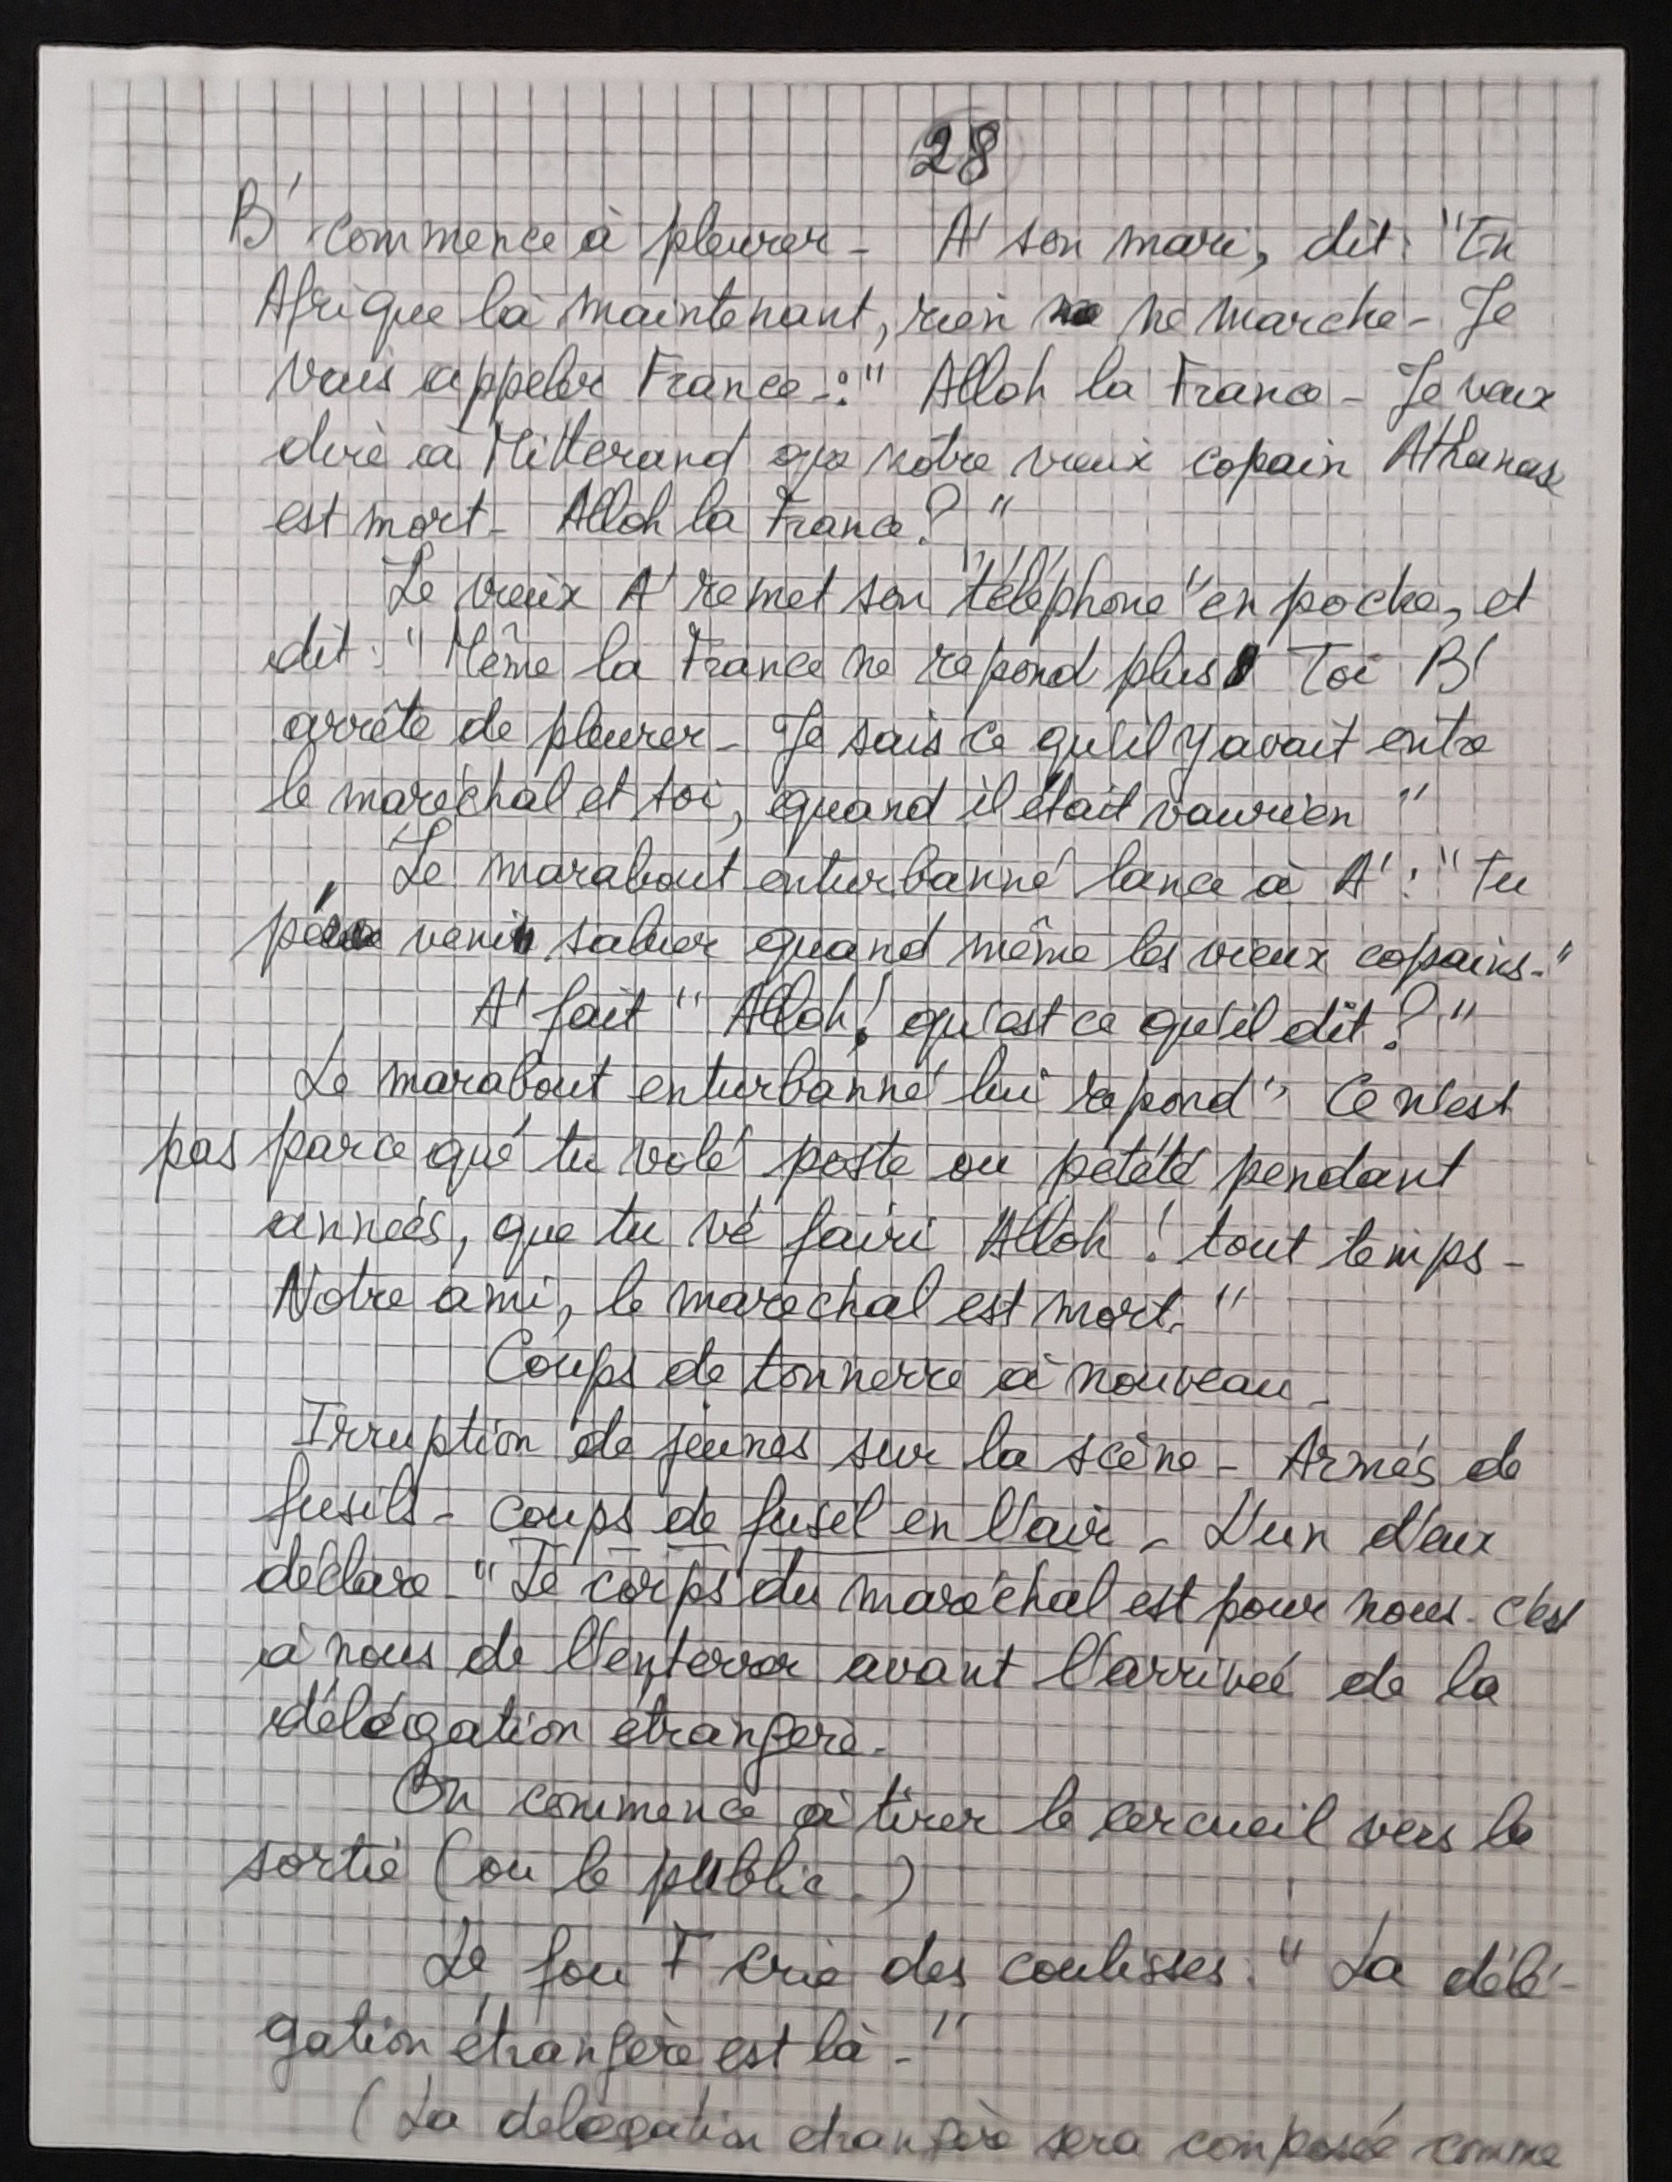 28
B' commence à pleurer - A' son mari, dit : "En
Afrique là maintenant, rien ne marche - Je
vais appeler France - :" Alloh la France - Je veux
dire à Mitterand que notre vieux copain Athanase
est mort - Alloh la France ? "
Le vieux A' remet son "téléphone" en poche, et
dit : " Même la France ne répond plus ! Toi B'
arrête de pleurer - Je sais ce qu'il y avait entre
le maréchal et toi, quand il était vaurien "
Le marabout enturbanné lance à A' : "Tu
venir saluer quand même les vieux copains - "
A' fait " Alloh ! qu'est ce qu'il dit ? "
Le marabout enturbanné lui répond " Ce n'est
pas parce que tu volé poste ou pétété pendant
années, que tu vé fairi Alloh ! tout temps -
Notre ami, le maréchal est mort. "
Coups de tonnerre à nouveau -
Irruption de jeunes sur la scène - Armés de
fusils - coups de fusil en l'air - L'un d'eux
déclare - " Le corps du maréchal est pour nous - c'est
à nous de l'enterrer avant l'arrivée de la
délégation étrangère -
On commence à tirer le cercueil vers la
sortie (ou le public .)
Le fou F crie des coulisses : " La délé-
gation étrangère est là - "
(La délégation étrangère sera composée comme